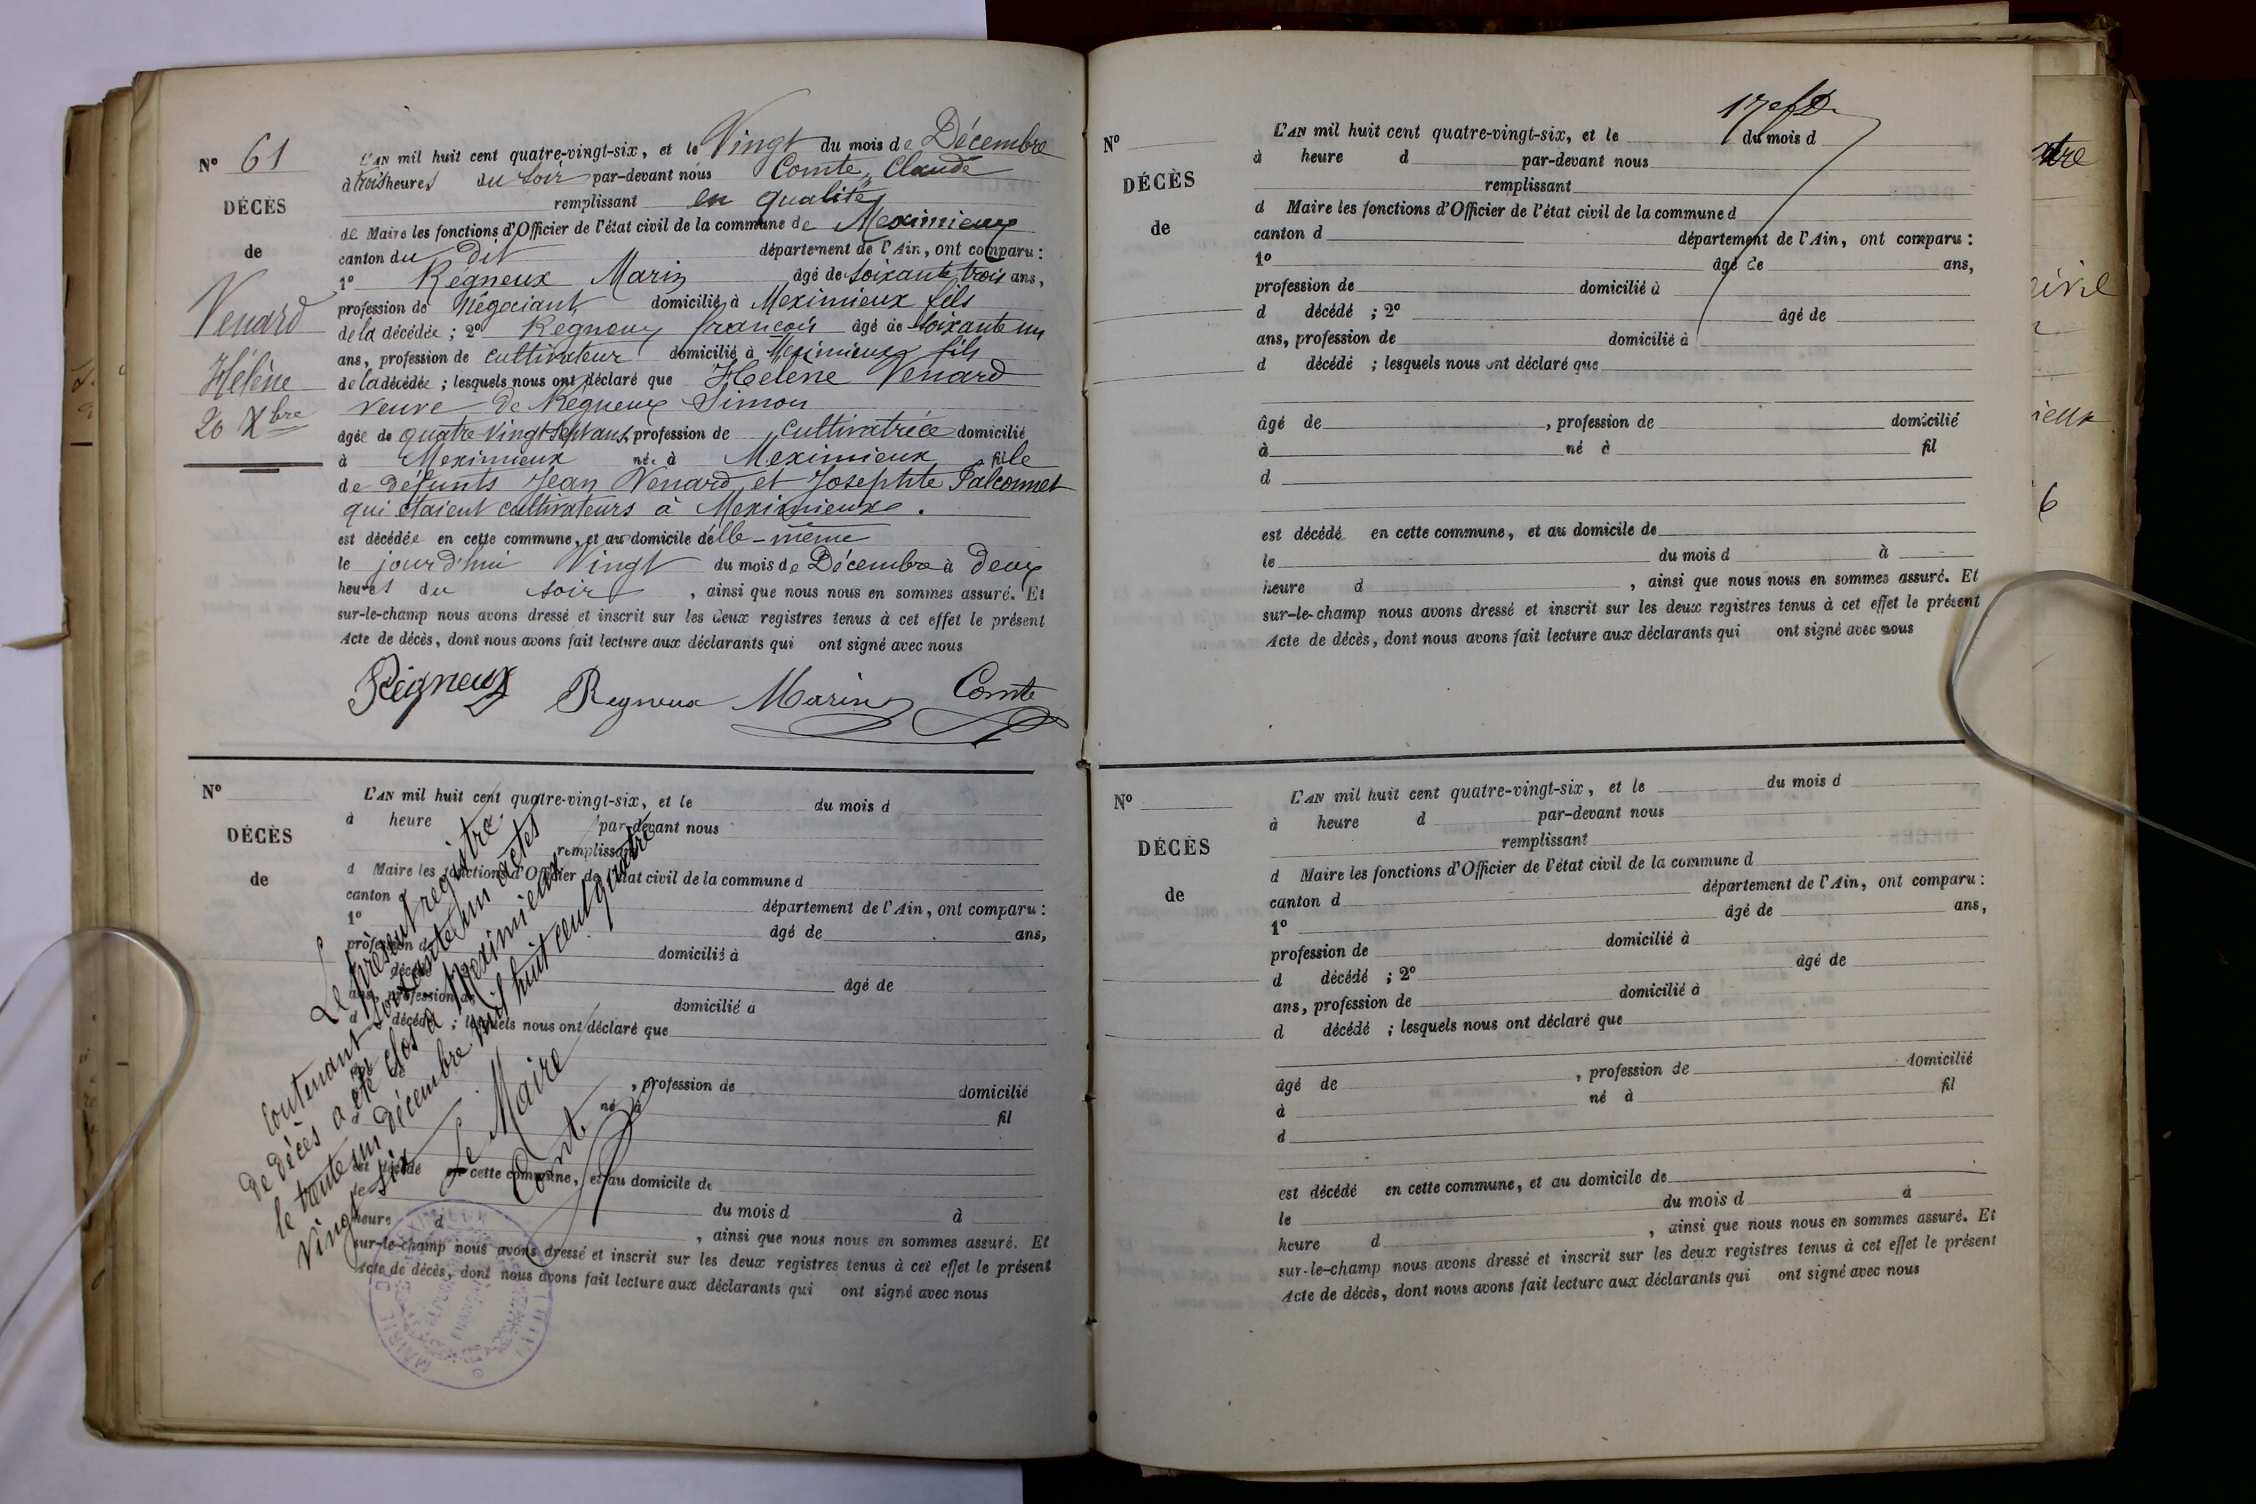 N° 61
DÉCÈS
de
Venard
Hélène
20 Xbre
L'AN mil huit cent quatre-vingt-six, et le Vingt du mois de Décembre
à trois heures du soir par-devant nous Comte, Claude
remplissant en qualité
de Maire les fonctions d'Officier de l'état civil de la commune de Meximieux
canton du dit département de l'Ain, ont comparu :
1° Régneux Marin âgé de soixante trois ans,
profession de Négociant domicilié à Meximieux fils
de la décédée ; 2° Regneux françois âgé de soixante un
ans, profession de cultivateur domicilié à Meximieux fils
de la décédée ; lesquels nous ont déclaré que Hélène Venard
veuve de Régneux Simon
âgée de quatre vingt sept ans, profession de cultivatrice domicilié
à Meximieux née à Meximieux fille
de défunts Jean Venard et Josephte Falconnet
qui étaient cultivateurs à Meximieux.
est décédée en cette commune, et au domicile d'elle-même
le jourd'hui Vingt du mois de Décembre à deux
heures du soir, ainsi que nous nous en sommes assuré. Et
sur-le-champ nous avons dressé et inscrit sur les deux registres tenus à cet effet le présent
Acte de décès, dont nous avons fait lecture aux déclarants qui ont signé avec nous
Régneux Regneux Marin Comte
N°
DÉCÈS
de
L'AN mil huit cent quatre-vingt-six, et le du mois d
à heure d par-devant nous
remplissant
d Maire les fonctions d'Officier de l'état civil de la commune d
canton d département de l'Ain, ont comparu :
1° âgé de ans,
profession de domicilié à
d décédé ; 2° âgé de
ans, profession de domicilié à
d décédé ; lesquels nous ont déclaré que
, profession de domicilié
né à fil
est décédé en cette commune, et au domicile de
le du mois d à
heure d , ainsi que nous nous en sommes assuré. Et
sur-le-champ nous avons dressé et inscrit sur les deux registres tenus à cet effet le présent
Acte de décès, dont nous avons fait lecture aux déclarants qui ont signé avec nous
Le présent registre
contenant soixante un actes
de décès a été clos à Meximieux
le trente un décembre mil huit cent quatre
Vingt six
Le Maire
Comte
N°
DÉCÈS
de
L'AN mil huit cent quatre-vingt-six, et le du mois d
à heure d par-devant nous
remplissant
d Maire les fonctions d'Officier de l'état civil de la commune d
canton d département de l'Ain, ont comparu :
1° âgé de ans,
profession de domicilié à
d décédé ; 2° âgé de
ans, profession de domicilié à
d décédé ; lesquels nous ont déclaré que
âgé de , profession de domicilié
à né à fil
d
est décédé en cette commune, et au domicile de
le du mois d à
heure d , ainsi que nous nous en sommes assuré. Et
sur-le-champ nous avons dressé et inscrit sur les deux registres tenus à cet effet le présent
Acte de décès, dont nous avons fait lecture aux déclarants qui ont signé avec nous
N°
DÉCÈS
de
L'AN mil huit cent quatre-vingt-six, et le du mois d
à heure d par-devant nous
remplissant
d Maire les fonctions d'Officier de l'état civil de la commune d
canton d département de l'Ain, ont comparu :
1° âgé de ans,
profession de domicilié à
d décédé ; 2° âgé de
ans, profession de domicilié à
d décédé ; lesquels nous ont déclaré que
âgé de , profession de domicilié
à né à fil
d
est décédé en cette commune, et au domicile de
le du mois d à
heure d , ainsi que nous nous en sommes assuré. Et
sur-le-champ nous avons dressé et inscrit sur les deux registres tenus à cet effet le présent
Acte de décès, dont nous avons fait lecture aux déclarants qui ont signé avec nous